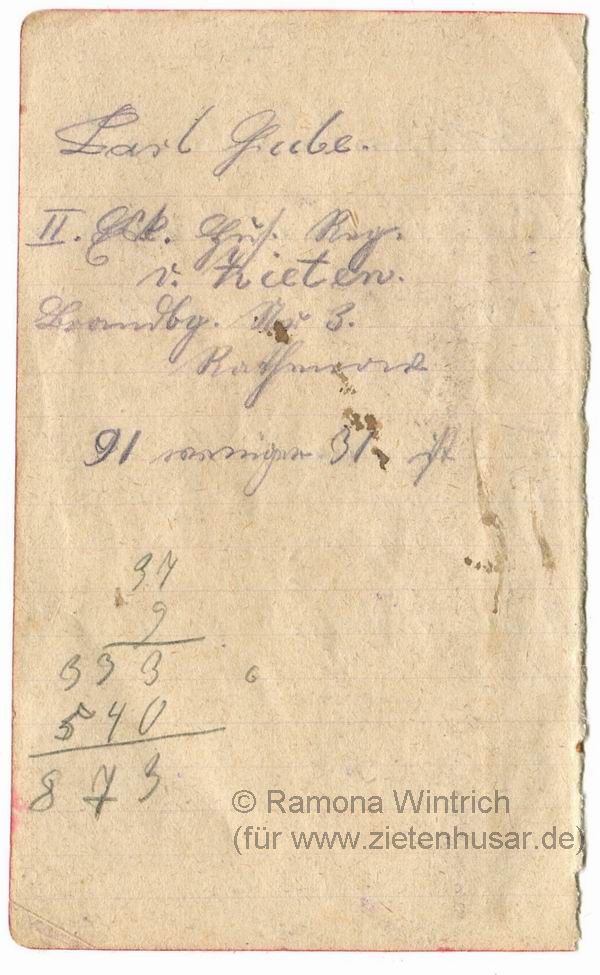 Karl Grube.
II. Esk. Hus. Reg.
v. Zieten.
Brandbg. Nr 3.
Rathenow
91 weniger 31 ist
37
9
333
6
540
873
© Ramona Wintrich
(für www.zietenhusar.de)